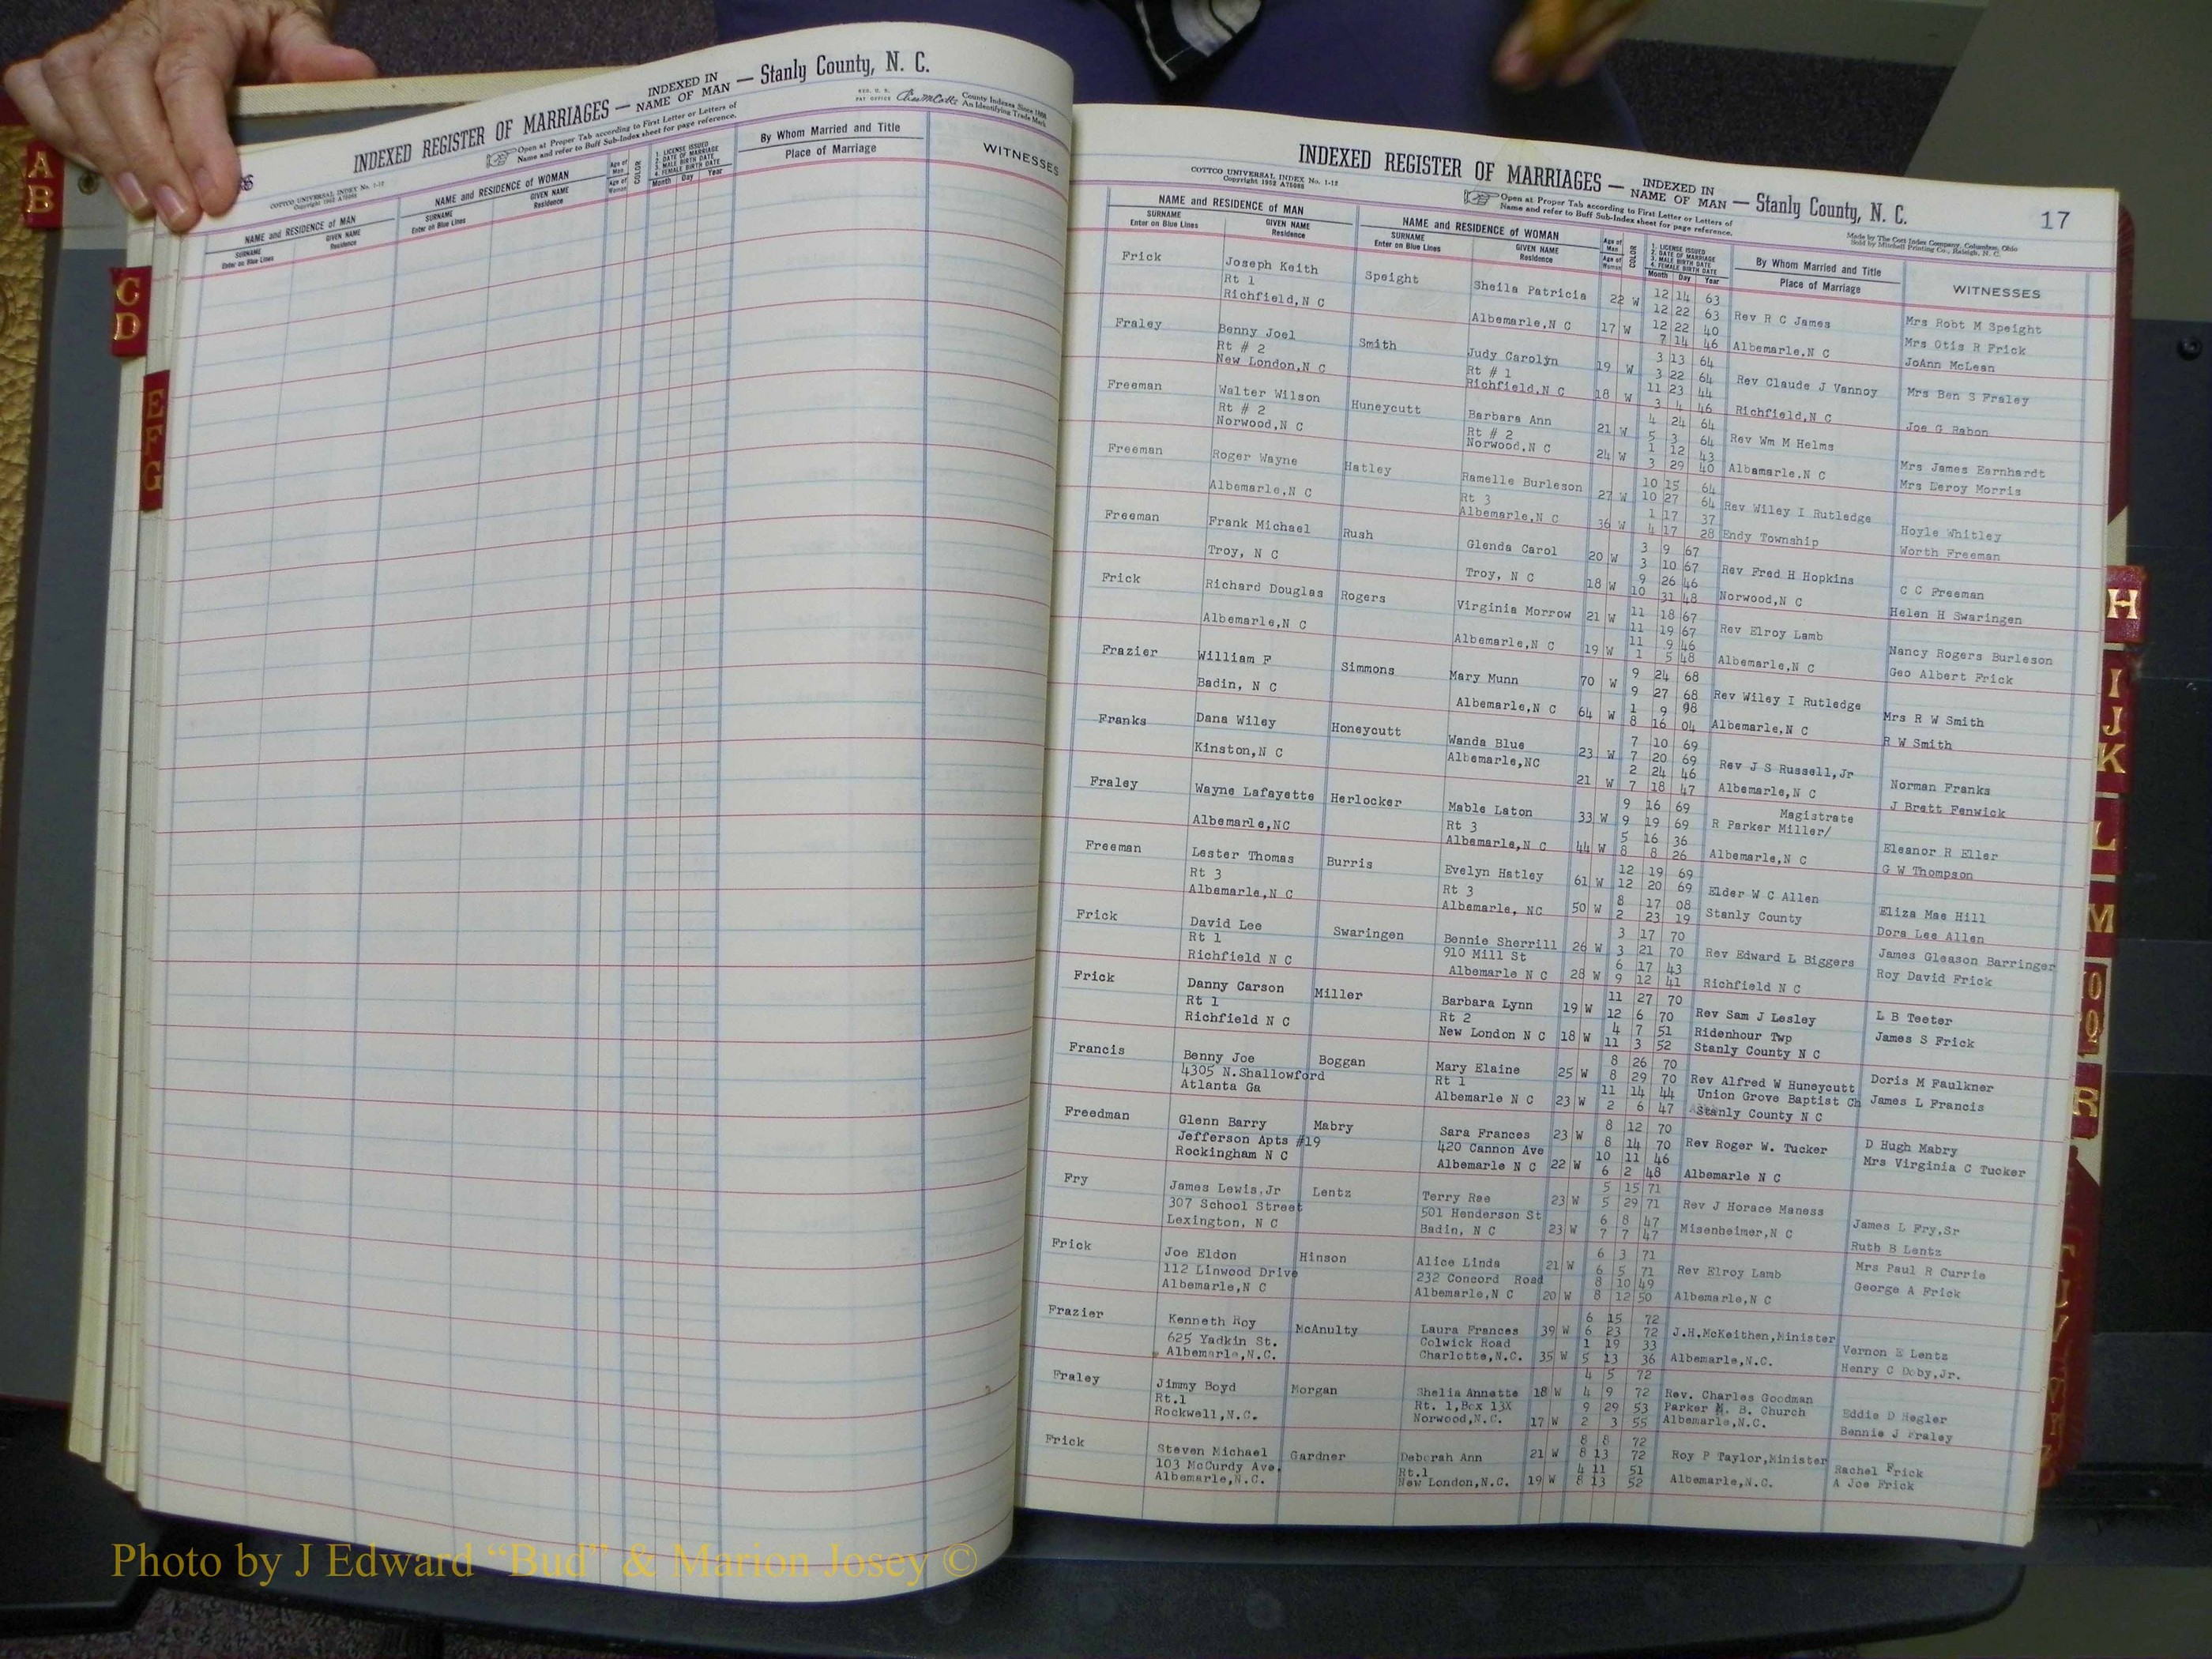 INDEXED REGISTER OF MARRIAGES — INDEXED IN NAME OF MAN — Stanly County, N. C.
COTTCO UNIVERSAL INDEX No. 1-12
Copyright 1952 A75086
Open at Proper Tab according to First Letter or Letters of
Name and refer to Buff Sub-Index sheet for page reference.
County Indexes Since 1888
An Identifying Trade Mark
NAME and RESIDENCE of MAN
SURNAME GIVEN NAME
Enter on Blue Lines Residence
NAME and RESIDENCE of WOMAN
SURNAME GIVEN NAME
Enter on Blue Lines Residence
Age of Man
Age of Woman
COLOR
1. LICENSE ISSUED
2. DATE OF MARRIAGE
3. MALE BIRTH DATE
4. FEMALE BIRTH DATE
Month Day Year
By Whom Married and Title
Place of Marriage
WITNESSES
A B
C D
E F G
INDEXED REGISTER OF MARRIAGES — INDEXED IN NAME OF MAN — Stanly County, N. C.
17
COTTCO UNIVERSAL INDEX No. 1-12
Copyright 1952 A75086
Open at Proper Tab according to First Letter or Letters of
Name and refer to Buff Sub-Index sheet for page reference.
Made by The Cott Index Company, Columbus, Ohio
Sold by Mitchell Printing Co., Raleigh, N. C.
NAME and RESIDENCE OF MAN
SURNAME GIVEN NAME
Enter on Blue Lines Residence
NAME and RESIDENCE OF WOMAN
SURNAME GIVEN NAME
Enter on Blue Lines Residence
Age of Man
Age of Woman
COLOR
1. LICENSE ISSUED
2. DATE OF MARRIAGE
3. MALE BIRTH DATE
4. FEMALE BIRTH DATE
Month Day Year
By Whom Married and Title
Place of Marriage
WITNESSES
Frick Joseph Keith Speight Sheila Patricia 22 W 12 14 63 Rev R C James Mrs Robt M Speight
Rt 1 12 22 63 Mrs Otis R Frick
Richfield,N C Albemarle,N C 17 W 12 22 40 Albemarle,N C JoAnn McLean
7 14 46
Fraley Benny Joel Smith Judy Carolyn 19 W 3 13 64 Rev Claude J Vannoy Mrs Ben S Fraley
Rt # 2 Rt # 1 3 22 64
New London,N C Richfield,N C 18 W 11 23 44 Richfield,N C Joe G Rabon
3 4 46
Freeman Walter Wilson Huneycutt Barbara Ann 21 W 4 24 64 Rev Wm M Helms Mrs James Earnhardt
Rt # 2 Rt # 2 5 3 64
Norwood,N C Norwood,N C 24 W 1 12 43 Albamarle,N C Mrs Leroy Morris
3 29 40
Freeman Roger Wayne Hatley Ramelle Burleson 27 W 10 15 64 Rev Wiley I Rutledge Hoyle Whitley
Rt 3 10 27 64
Albemarle,N C Albemarle,N C 36 W 1 17 37 Endy Township Worth Freeman
4 17 28
Freeman Frank Michael Rush Glenda Carol 20 W 3 9 67 Rev Fred H Hopkins C C Freeman
3 10 67
Troy, N C Troy, N C 18 W 9 26 46 Norwood,N C Helen H Swaringen
10 31 48
Frick Richard Douglas Rogers Virginia Morrow 21 W 11 18 67 Rev Elroy Lamb Nancy Rogers Burleson
11 19 67
Albemarle,N C Albemarle,N C 19 W 11 9 46 Albemarle,N C Geo Albert Frick
1 5 48
Frazier William F Simmons Mary Munn 70 W 9 24 68 Rev Wiley I Rutledge Mrs R W Smith
9 27 68
Badin, N C Albemarle,N C 64 W 1 9 98 Albemarle,N C R W Smith
8 16 04
Franks Dana Wiley Honeycutt Wanda Blue 23 W 7 10 69 Rev J S Russell,Jr Norman Franks
7 20 69
Kinston,N C Albemarle,NC 21 W 2 24 46 Albemarle,N C J Brett Fenwick
7 18 47
Fraley Wayne Lafayette Herlocker Mable Laton 33 W 9 16 69 Magistrate
Rt 3 9 19 69 R Parker Miller/ Eleanor R Eller
Albemarle,NC Albemarle,N C 44 W 5 16 36 Albemarle,N C G W Thompson
8 8 26
Freeman Lester Thomas Burris Evelyn Hatley 61 W 12 19 69 Elder W C Allen Eliza Mae Hill
Rt 3 Rt 3 12 20 69
Albemarle,N C Albemarle, NC 50 W 8 17 08 Stanly County Dora Lee Allen
2 23 19
Frick David Lee Swaringen Bennie Sherrill 26 W 3 17 70 Rev Edward L Biggers James Gleason Barringer
Rt 1 910 Mill St 3 21 70
Richfield N C Albemarle N C 28 W 6 17 43 Richfield N C Roy David Frick
9 12 41
Frick Danny Carson Miller Barbara Lynn 19 W 11 27 70 Rev Sam J Lesley L B Teeter
Rt 1 Rt 2 12 6 70 Ridenhour Twp James S Frick
Richfield N C New London N C 18 W 4 7 51 Stanly County N C
11 3 52
Francis Benny Joe Boggan Mary Elaine 25 W 8 26 70 Rev Alfred W Huneycutt Doris M Faulkner
4305 N.Shallowford Rt 1 8 29 70 Union Grove Baptist Ch James L Francis
Atlanta Ga Albemarle N C 23 W 11 14 44 Stanly County N C
2 6 47
Freedman Glenn Barry Mabry Sara Frances 23 W 8 12 70 Rev Roger W. Tucker D Hugh Mabry
Jefferson Apts #19 420 Cannon Ave 8 14 70 Mrs Virginia C Tucker
Rockingham N C Albemarle N C 22 W 10 11 46 Albemarle N C
6 2 48
Fry James Lewis,Jr Lentz Terry Ree 23 W 5 15 71 Rev J Horace Maness James L Fry,Sr
307 School Street 501 Henderson St 5 29 71
Lexington, N C Badin, N C 23 W 6 8 47 Misenheimer,N C Ruth B Lentz
7 7 47
Frick Joe Eldon Hinson Alice Linda 21 W 6 3 71 Rev Elroy Lamb Mrs Paul R Currie
112 Linwood Drive 232 Concord Road 6 5 71
Albemarle,N C Albemarle,N C 20 W 8 10 49 Albemarle,N C George A Frick
8 12 50
Frazier Kenneth Roy McAnulty Laura Frances 39 W 6 15 72 J.H.McKeithen,Minister Vernon E Lentz
625 Yadkin St. Colwick Road 6 23 72
Albemarle,N.C. Charlotte,N.C. 35 W 1 19 33 Albemarle,N.C. Henry C Doby,Jr.
5 13 36
Fraley Jimmy Boyd Morgan Shelia Annette 18 W 4 5 72 Rev. Charles Goodman Eddie D Hegler
Rt.1 Rt. 1,Box 13X 4 9 72 Parker M. B. Church
Rockwell,N.C. Norwood,N.C. 17 W 9 29 53 Albemarle,N.C. Bennie J Fraley
2 3 55
Frick Steven Michael Gardner Deborah Ann 21 W 8 8 72 Roy P Taylor,Minister Rachel Frick
103 McCurdy Ave. Rt.1 8 13 72
Albemarle,N.C. New London,N.C. 19 W 4 11 51 Albemarle,N.C. A Joe Frick
8 13 52
H
I J K
L
M
R
Photo by J Edward “Bud” & Marion Josey ©